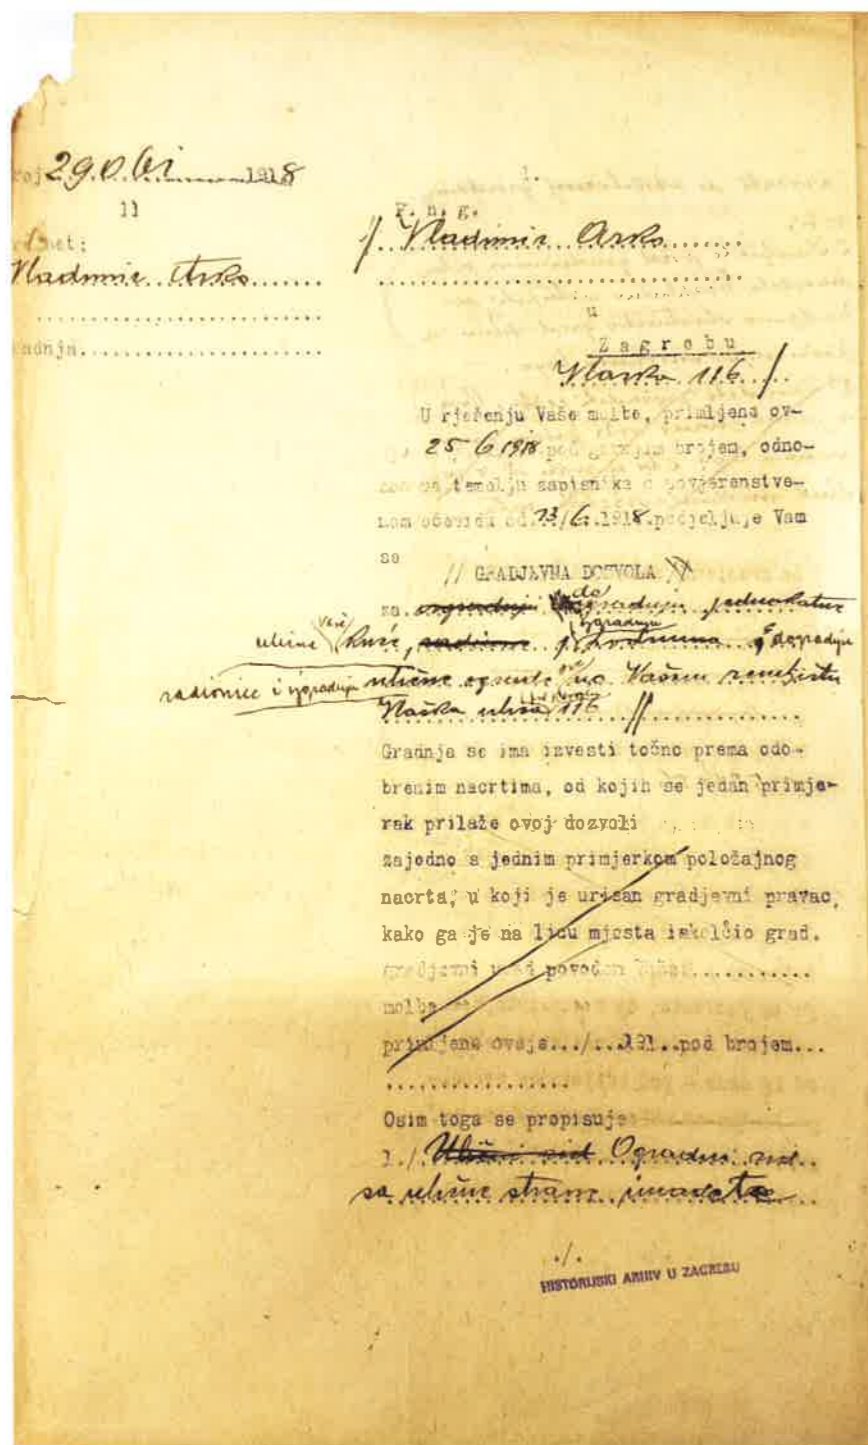 29061 1918
11
Vladimir Arko
1.
P. n. g.
/ Vladimir Arko
u
Zagrebu
Vlaška 116 /
U rješenju Vaše molbe, primljene ov-
25 6 1918 pod gornjim brojem, odno-
temelju zapisnika o povjerenstve-
nom očevidu od 13/6.1918.podjeljuje Vam
se
// GRADJEVNA DOZVOLA
za
radionice i izgradnju ulične ograde na Vašem zemljištu
Vlaška ulica 116 //
Gradnja se ima izvesti točno prema odo-
brenim nacrtima, od kojih se jedan primje-
rak prilaže ovoj dozvoli
zajedno s jednim primjerkom položajnog
nacrta, u koji je urisan gradjevni pravac,
kako ga je na licu mjesta iskolčio grad.
gradjevni ured povodom
molbe
primljene ovaje.../...191..pod brojem...
Osim toga se propisuje
1./ Ulični zid Ogradni zid
sa ulične strane imade te
./.
HISTORIJSKI ARHIV U ZAGREBU